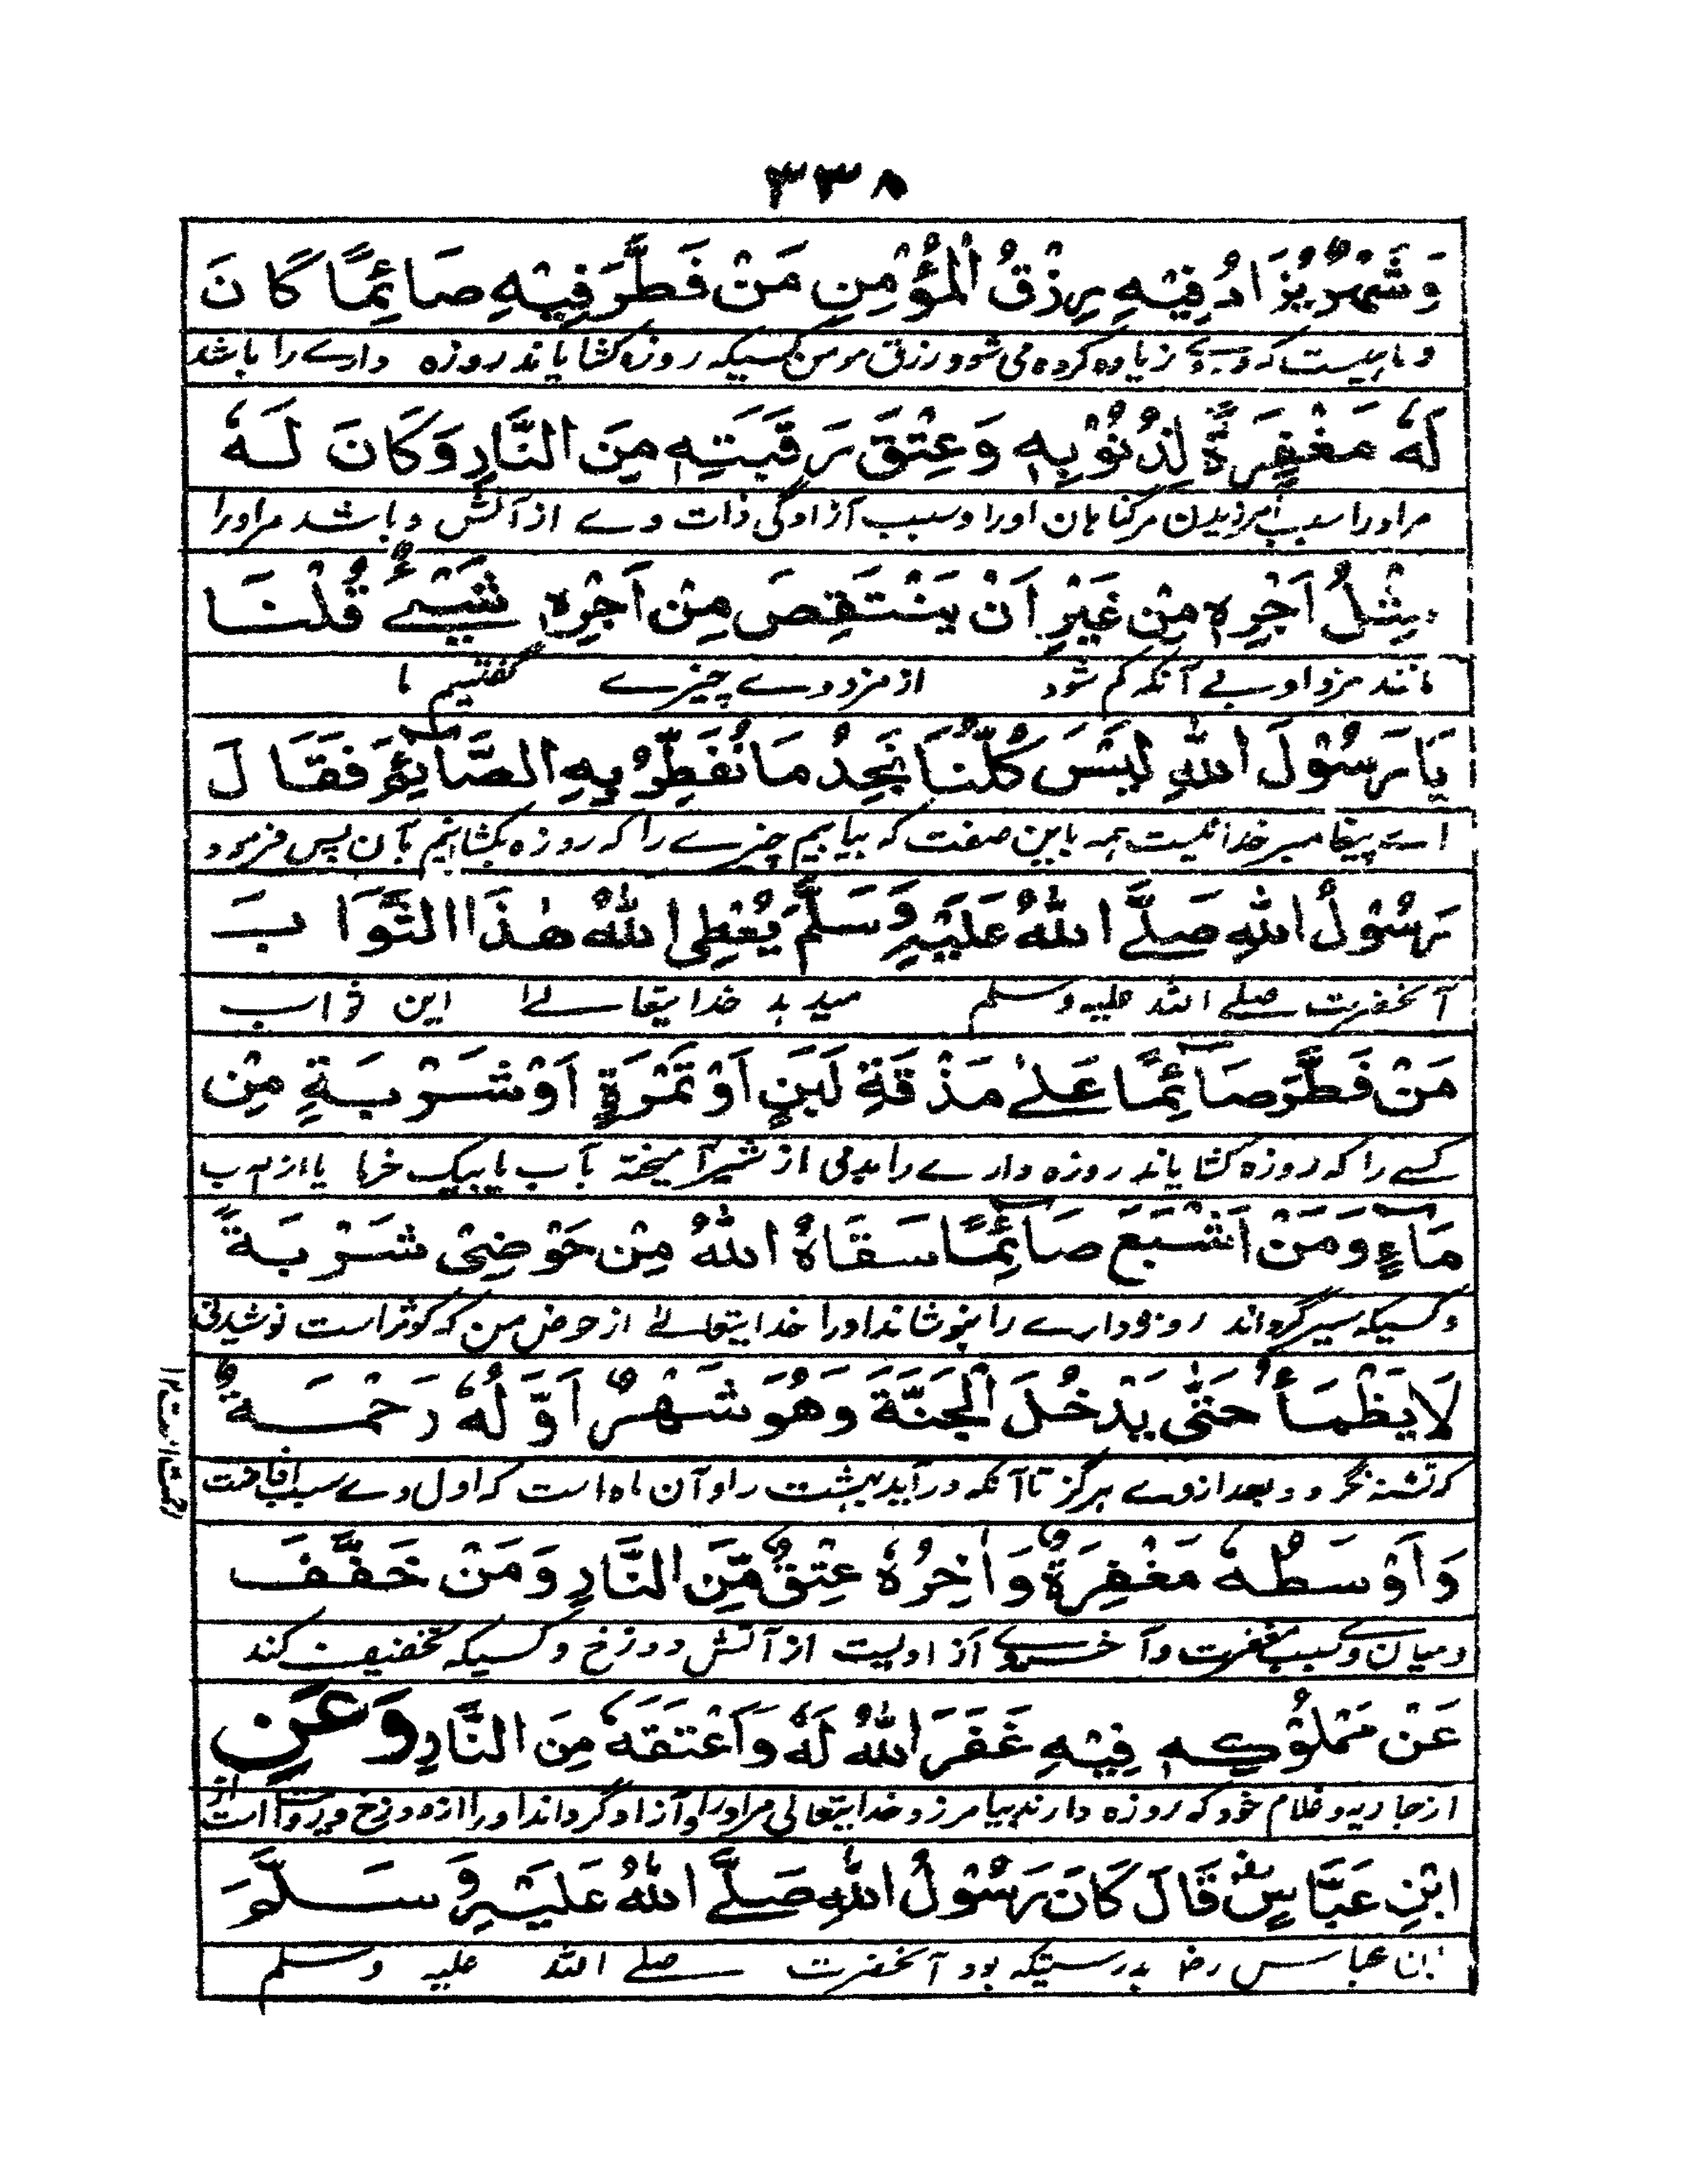 ٣٣٨
وَشَهْرٌ يُزَادُ فِيْهِ رِزْقُ الْمُؤْمِنِ مَنْ فَطَّرَ فِيْهِ صَائِمًا كَانَ
و ماهیست که در وے زیاده کرده می شود رزق مومن کسیکه روزه کشایاند روزه دارے را باشد
لَهٗ مَغْفِرَةً لِذُنُوْبِهٖ وَعِتْقَ رَقَبَتِهٖ مِنَ النَّارِ وَكَانَ لَهٗ
مراورا سبب آمرزیدن مر گناهان اورا و سبب آزادگی ذات وے از آتش و باشد مراورا
مِثْلُ اَجْرِهٖ مِنْ غَيْرِ اَنْ يَنْتَقِصَ مِنْ اَجْرِهٖ شَيْءٌ قُلْنَا
مانند مزد او بے آنکه کم شود از مزد وے چیزے گفتیم ما
يَا رَسُوْلَ اللهِ لَيْسَ كُلُّنَا نَجِدُ مَا نُفَطِّرُ بِهِ الصَّائِمَ فَقَالَ
اے پیغامبر خدا نیست همه باین صفت که بیابیم چیزے را که روزه بکشانیم بآن پس فرمود
رَسُوْلُ اللهِ صَلَّے اللهُ عَلَيْهِ وَسَلَّمَ يُعْطِي اللهُ هٰذَا الثَّوَابَ
آنحضرت صلے الله علیه وسلم میدهد خدایتعالےٰ این ثواب
مَنْ فَطَّرَ صَائِمًا عَلےٰ مَذْقَةِ لَبَنٍ اَوْ تَمْرَةٍ اَوْ شَرْبَةٍ مِنْ
کسے را که روزه کشایاند روزه دارے را بدمی از شیر آمیخته بآب یا بیک خرما یا از آب
مَاءٍ وَمَنْ اَشْبَعَ صَائِمًا سَقَاهُ اللهُ مِنْ حَوْضِيْ شَرْبَةً
و کسیکه سیر گرداند روزه دارے را بنوشاند اورا خدایتعالےٰ از حوض من که کوثر است نوشیدنی
لَا يَظْمَأُ حَتّٰى يَدْخُلَ الْجَنَّةَ وَهُوَ شَهْرٌ اَوَّلُهٗ رَحْمَةٌ
که تشنه نگردد بعد ازوے هرگز تا آنکه درآید بهشت را و آن ماه است که اول وے سبب افاضت
وَاَوْسَطُهٗ مَغْفِرَةٌ وَاٰخِرُهٗ عِتْقٌ مِّنَ النَّارِ وَمَنْ خَفَّفَ
و میان وے سبب مغفرت و آخر وے آزادیست از آتش دوزخ و کسیکه تخفیف کند
عَنْ مَمْلُوْكِهٖ فِيْهِ غَفَرَ اللهُ لَهٗ وَاَعْتَقَهٗ مِنَ النَّارِ وَعَنِ
از جاریه و غلام خود که روزه دارند بیامرزد خدایتعالی مراورا و آزاد گرداند اورا از دوزخ و روایت است از
ابْنِ عَبَّاسٍ قَالَ كَانَ رَسُوْلُ اللهِ صَلَّے اللهُ عَلَيْهِ وَسَلَّمَ
ابن عباس رضا بدرستیکه بود آنحضرت صلے الله علیه وسلم